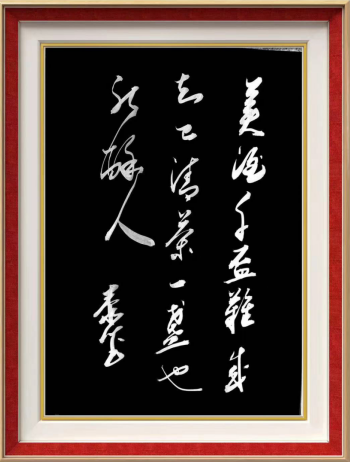 美酒千盃難成
知己清茶一盞也
能醉人